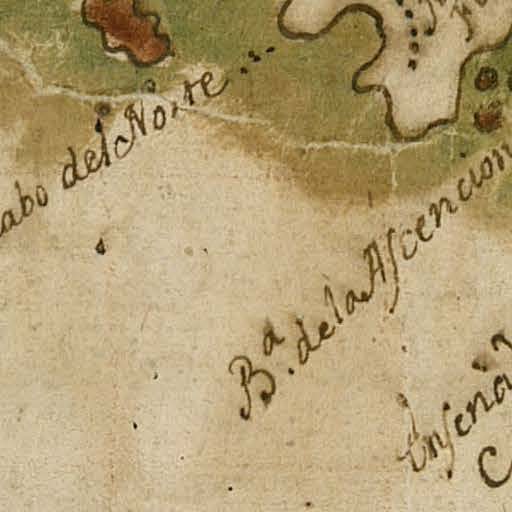 abo del Norte...
Bª. de la Ascencion
Ensena